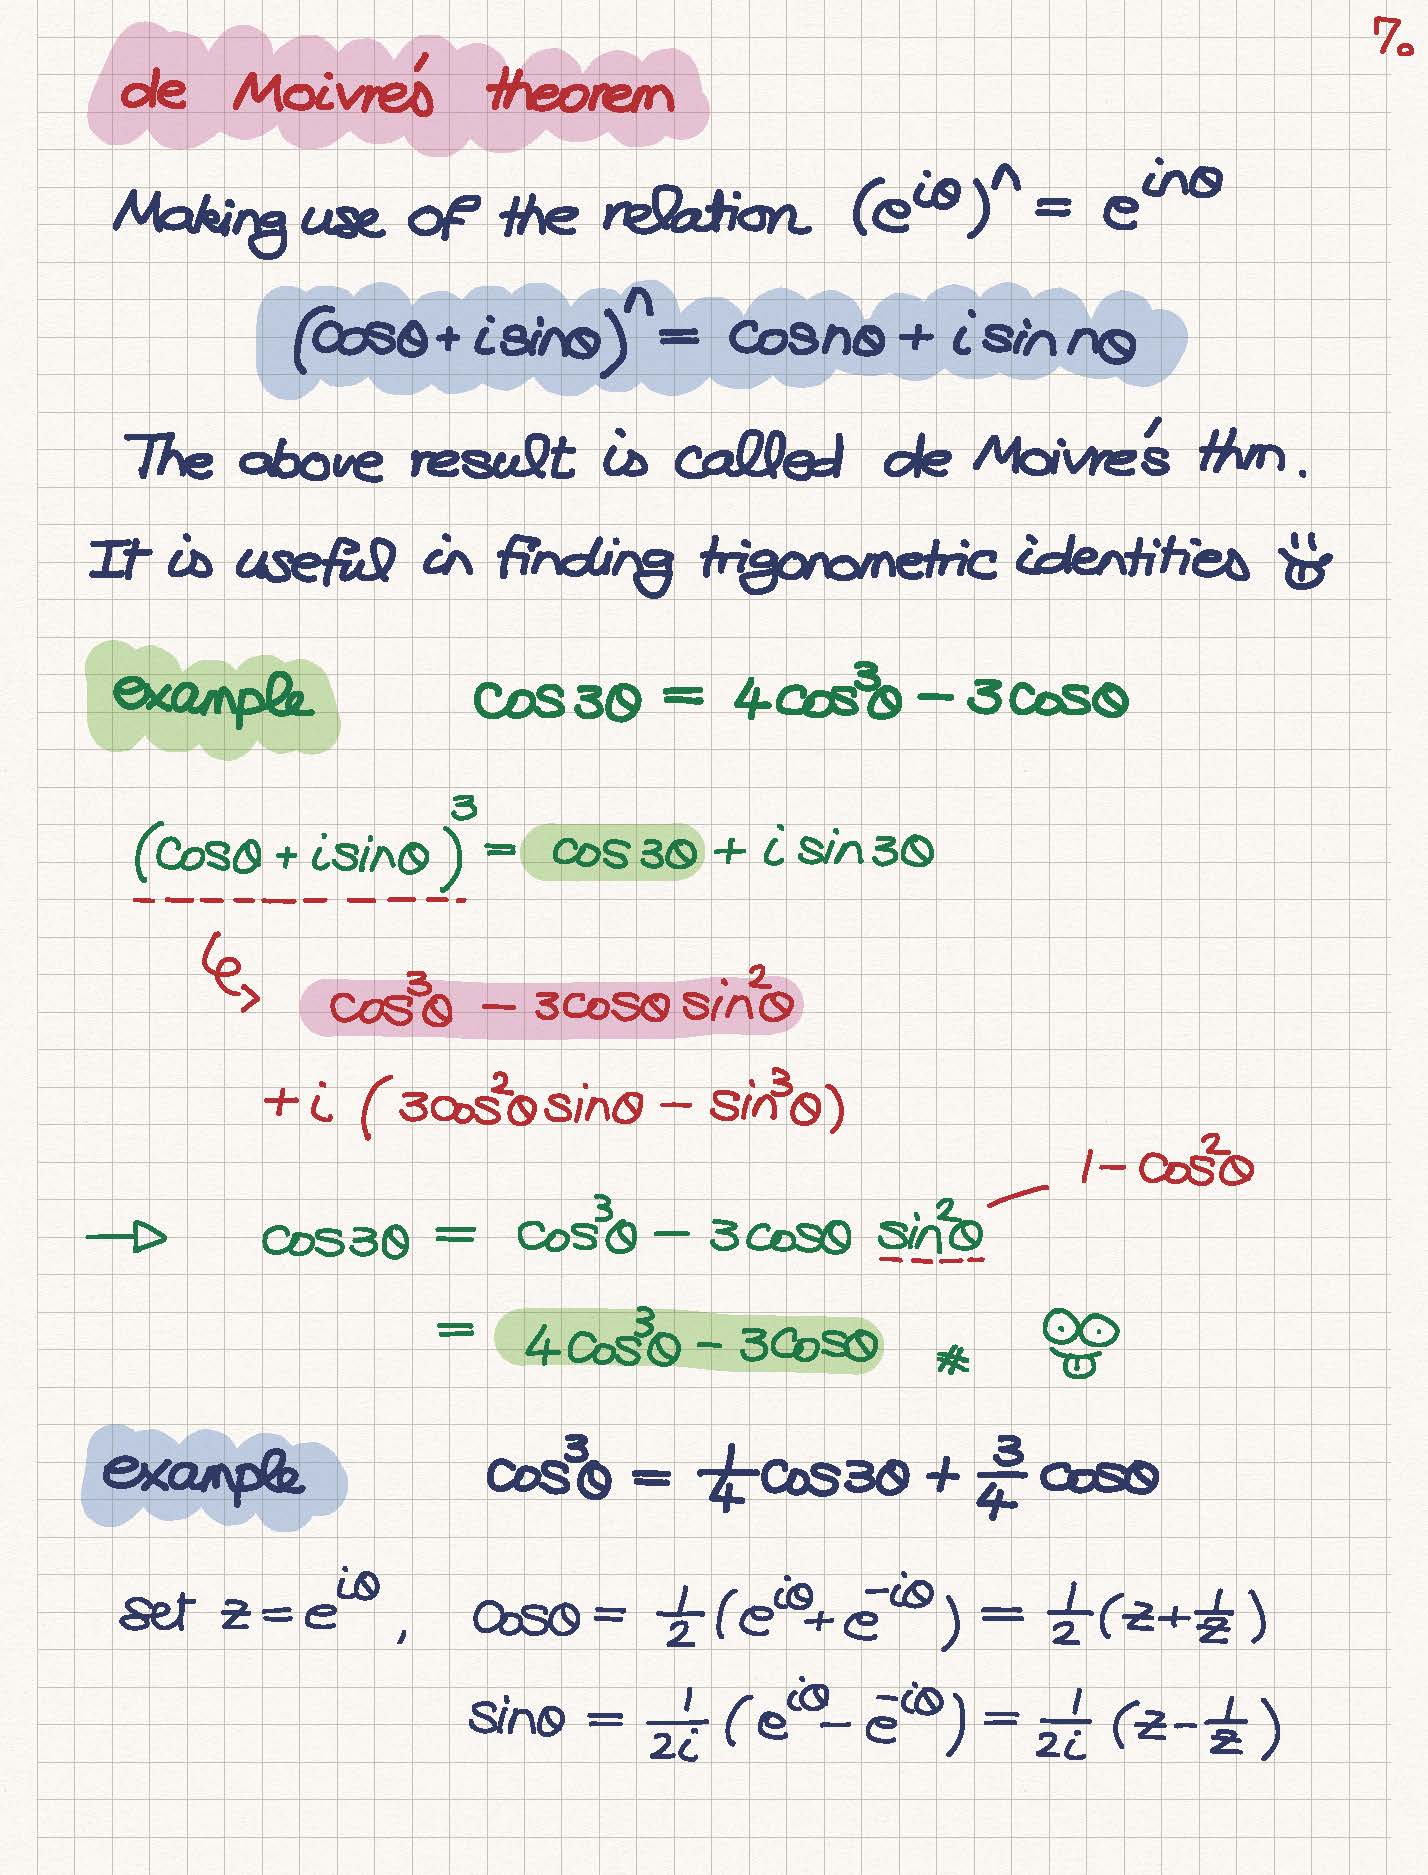 7.
de Moivre's theorem
Making use of the relation (e^{iθ})^n = e^{inθ}
(cosθ + i sinθ)^n = cos nθ + i sin nθ
The above result is called de Moivre's thm.
It is useful in finding trigonometric identities
example cos3θ = 4cos³θ − 3cosθ
(cosθ + i sinθ)³ = cos3θ + i sin3θ
cos³θ − 3cosθ sin²θ
+ i (3cos²θ sinθ − sin³θ)
1 − cos²θ
→ cos3θ = cos³θ − 3cosθ sin²θ
= 4cos³θ − 3cosθ #
example cos³θ = 1/4 cos3θ + 3/4 cosθ
set z = e^{iθ}, cosθ = 1/2 (e^{iθ} + e^{-iθ}) = 1/2 (z + 1/z)
sinθ = 1/2i (e^{iθ} − e^{-iθ}) = 1/2i (z − 1/z)